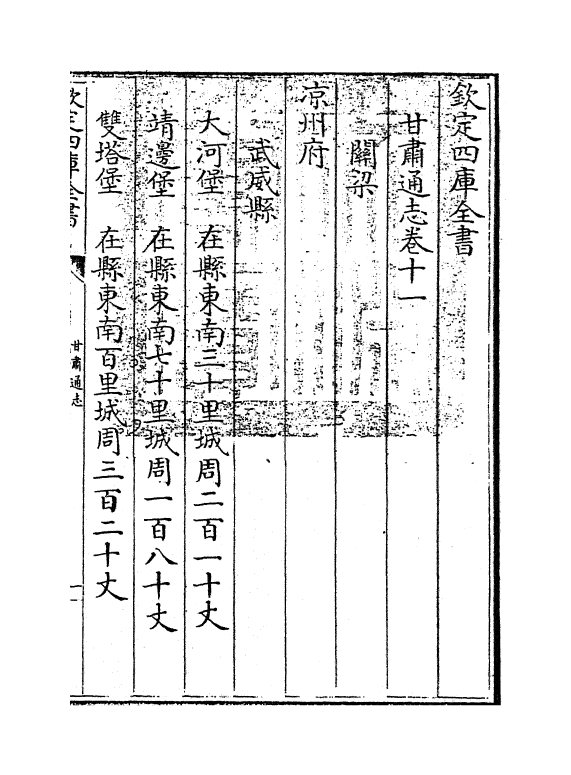 欽定四庫全書
甘肅通志卷十一
關梁
凉州府
武威縣
大河堡　在縣東南三十里城周二百一十丈
靖邊堡　在縣東南七十里城周一百八十丈
雙塔堡　在縣東南百里城周三百二十丈
欽定四庫全書
甘肅通志
一